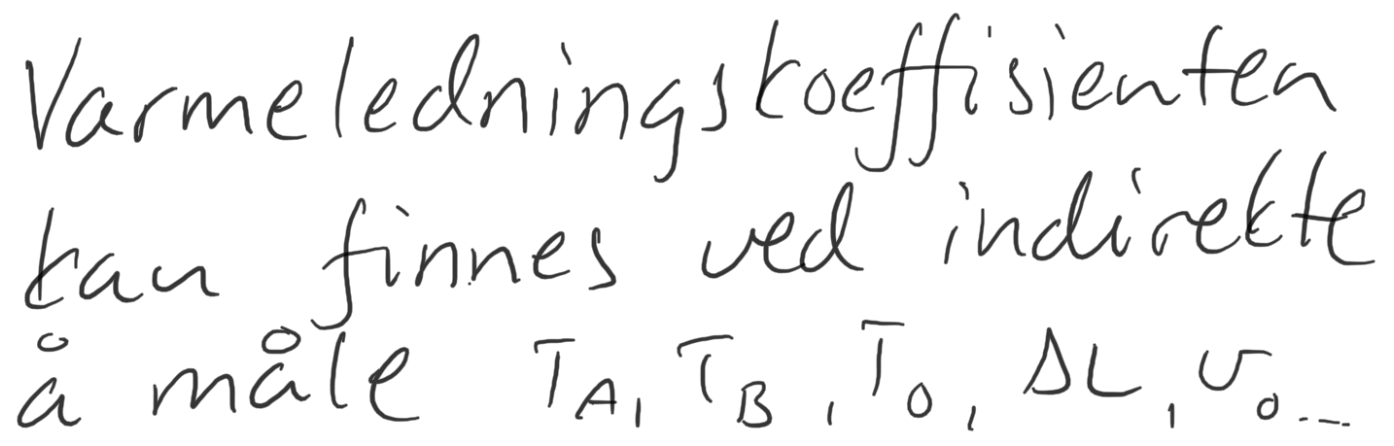 Varmeledningskoeffisienten
kan finnes ved indirekte
å måle T_A, T_B, T_0, ΔL, v_0...